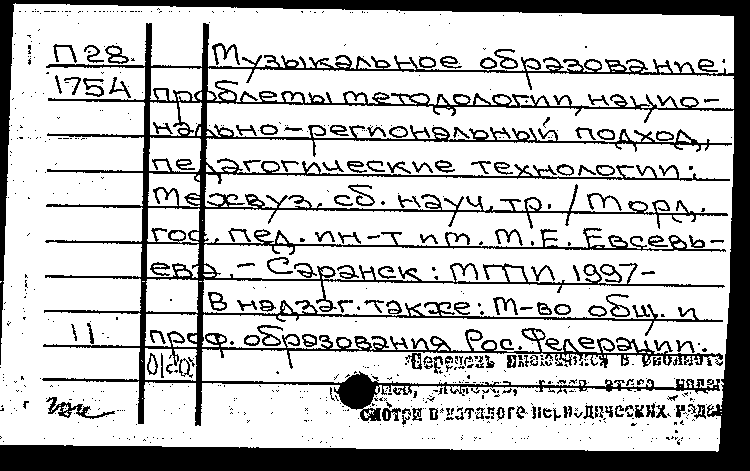 П 28. Музыкальное образование:
1754 проблемы методологии, нацио-
нально-региональный подход,
педагогические технологии:
Межвуз. сб. науч. тр. / Морд.
гос. пед. ин-т им. М.Е. Евсевь-
ева. – Саранск: МГПИ, 1997–
В надзаг. также: М-во общ. и
11 проф. образования Рос. Федерации.
Перечень имеющихся в библиоте
номеров, годов этого издан
смотри в каталоге периодических издан